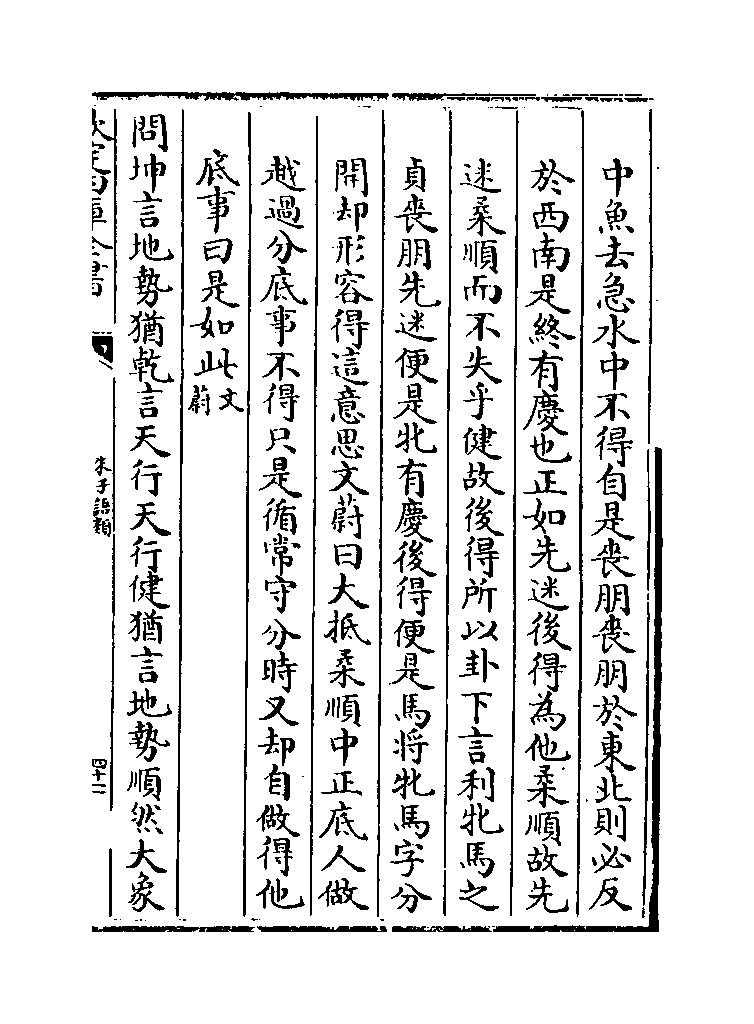 中魚去急水中不得自是喪朋喪朋於東北則必反
於西南是終有慶也正如先迷後得為他柔順故先
迷柔順而不失乎健故後得所以卦下言利牝馬之
貞喪朋先迷便是牝有慶後得便是馬將牝馬字分
開却形容得這意思文蔚曰大抵柔順中正底人做
越過分底事不得只是循常守分時又却自做得他
底事曰是如此文蔚
問坤言地勢猶乾言天行天行健猶言地勢順然大象
欽定四庫全書
朱子語類
四十二